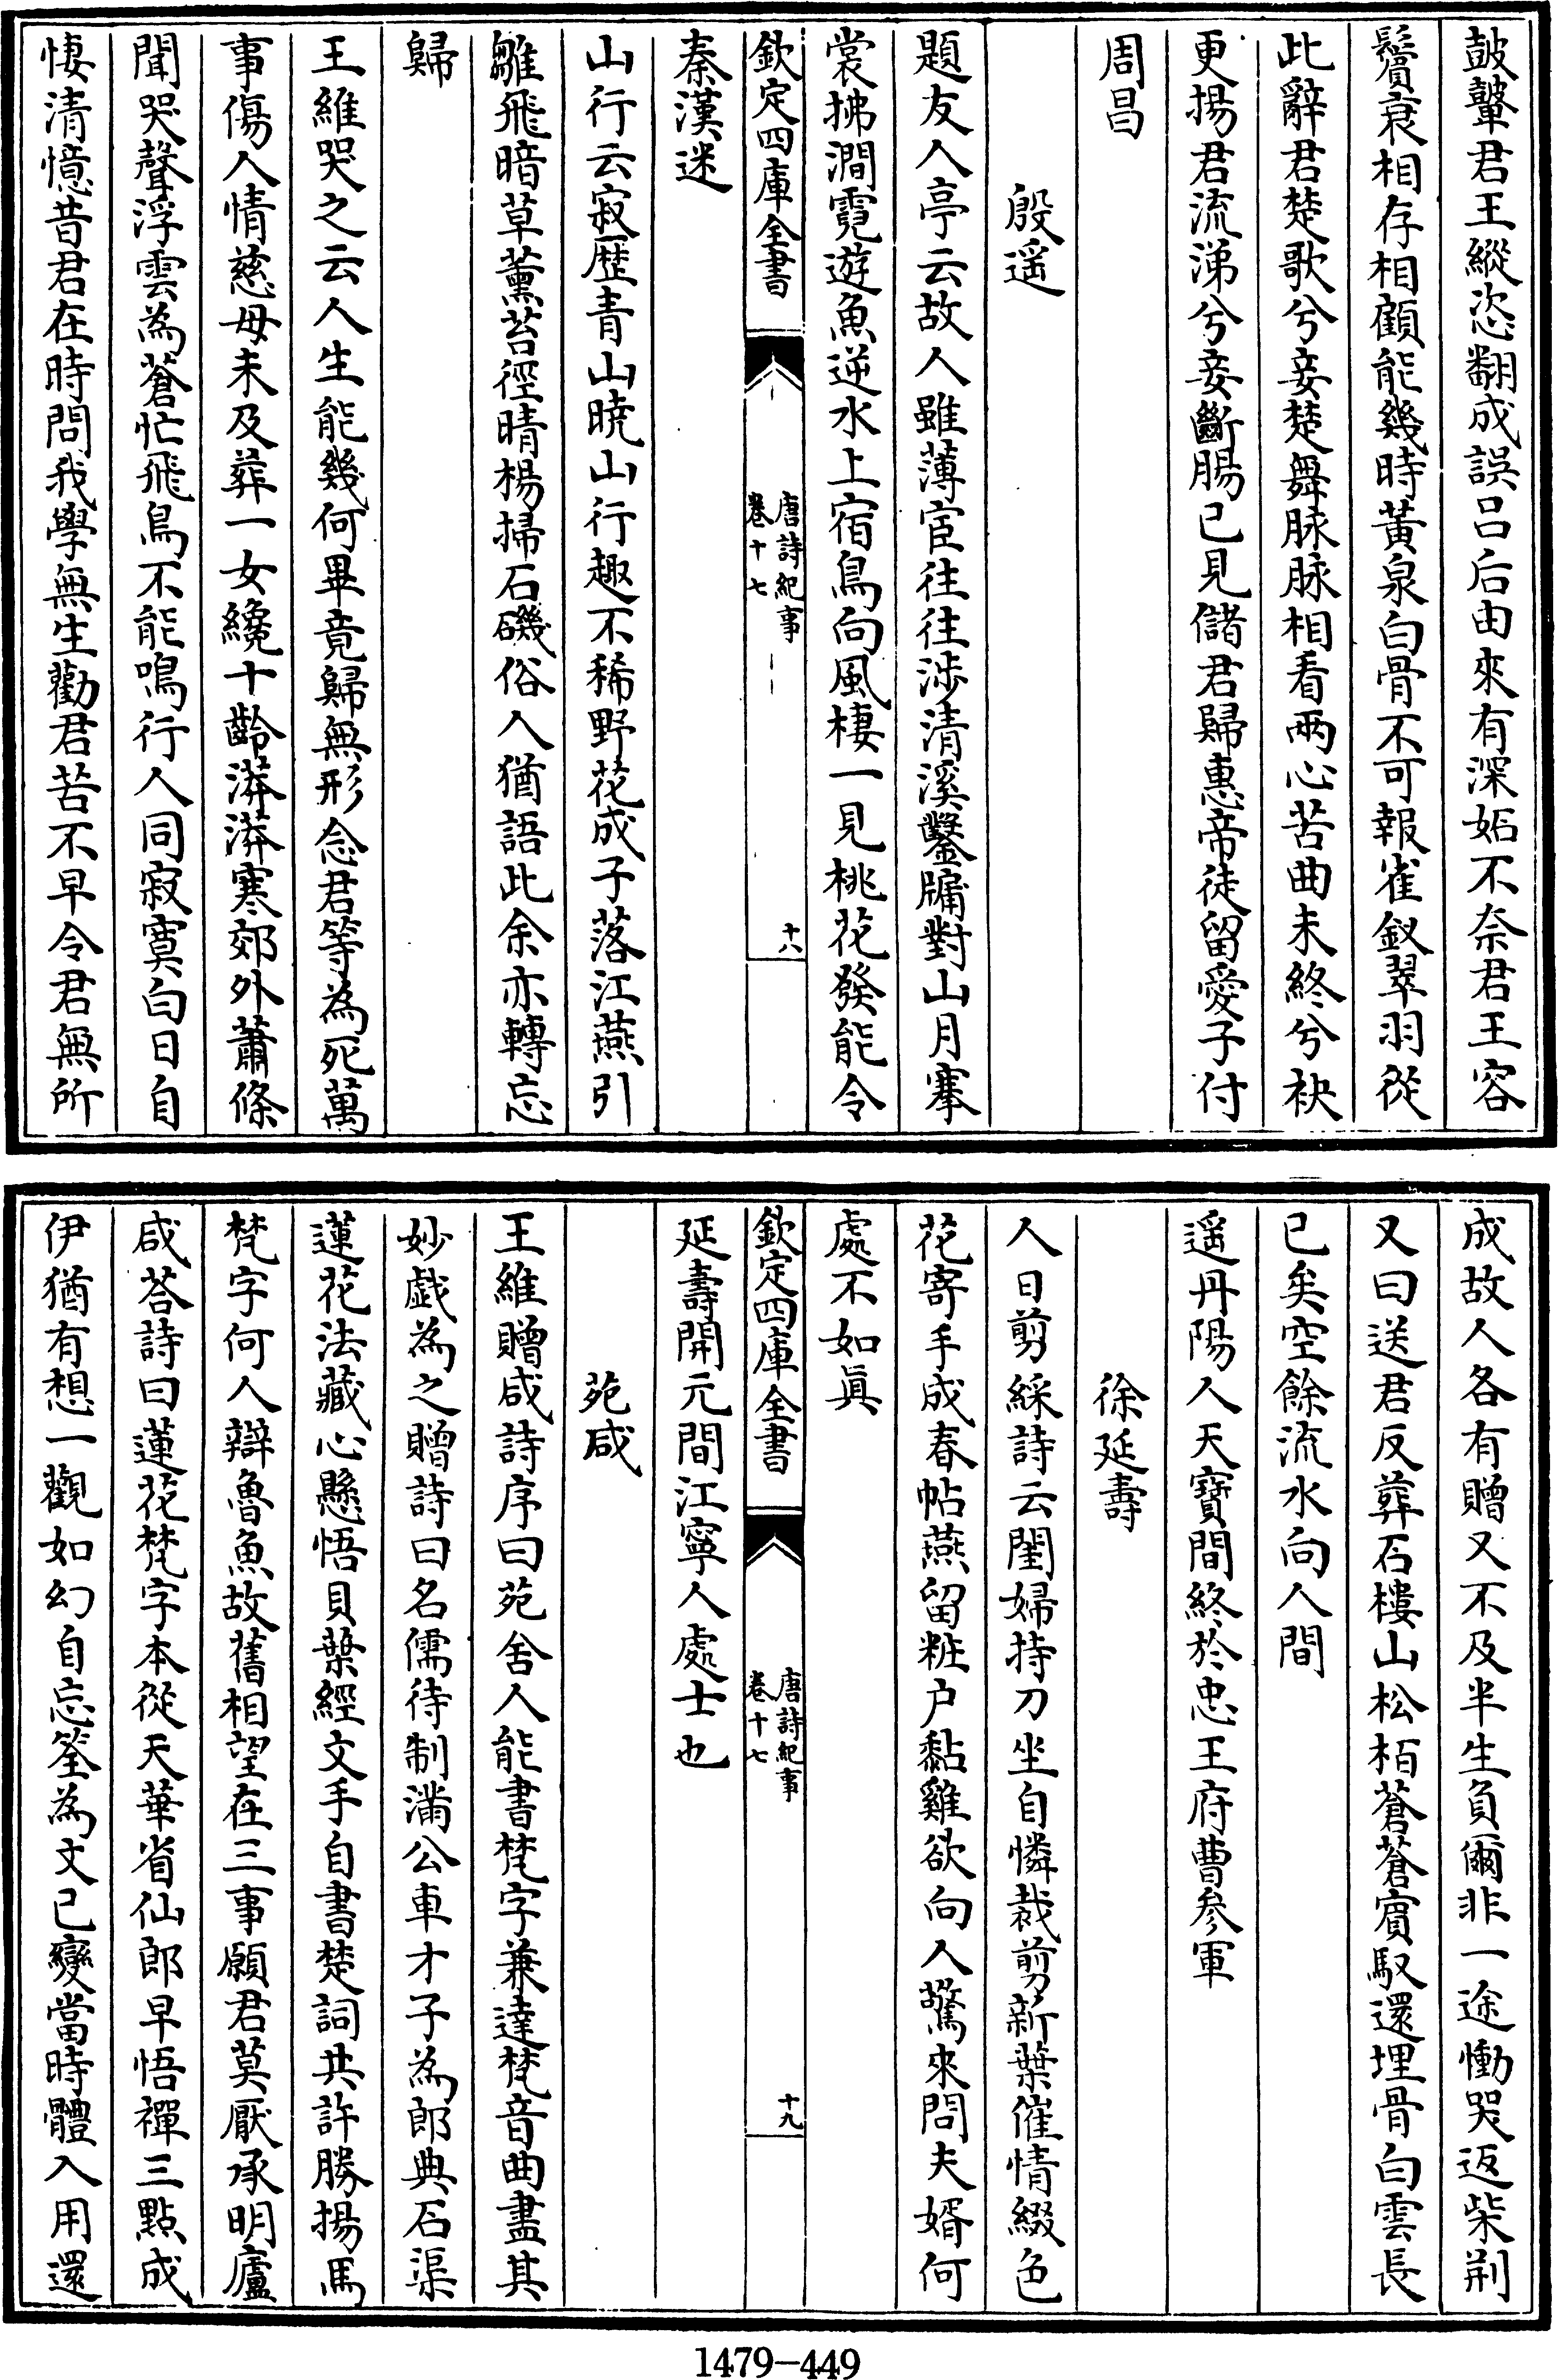 鼓鼙君王縱恣翻成誤吕后由來有深妬不奈君王容
鬢衰相存相顧能幾時黃泉白骨不可報雀釵翠羽從
此辭君楚歌兮妾楚舞脉脉相看兩心苦曲未終兮袂
更揚君流涕兮妾斷腸已見儲君歸惠帝徒留愛子付
周昌
殷遥
題友人亭云故人雖薄宦往往涉清溪鑿牖對山月搴
裳拂澗霓遊魚逆水上宿鳥向風棲一見桃花發能令
欽定四庫全書
唐詩紀事
卷十七
十八
秦漢迷
山行云寂歷青山曉山行趣不稀野花成子落江燕引
雛飛暗草薰苔徑晴楊掃石磯俗人猶語此余亦轉忘
歸
王維哭之云人生能幾何畢竟歸無形念君等為死萬
事傷人情慈母未及葬一女纔十齡漭漭寒郊外蕭條
聞哭聲浮雲為蒼忙飛鳥不能鳴行人同寂寞白日自
悽清憶昔君在時問我學無生勸君苦不早令君無所
成故人各有贈又不及半生負爾非一途慟哭返柴荆
又曰送君反葬石樓山松栢蒼蒼賓馭還埋骨白雲長
已矣空餘流水向人間
遥丹陽人天寶間終於忠王府曹參軍
徐延壽
人日剪綵詩云閨婦持刀坐自憐裁剪新葉催情綴色
花寄手成春帖燕留粧户黏雞欲向人驚來問夫婿何
處不如眞
欽定四庫全書
唐詩紀事
卷十七
十九
延壽開元間江寧人處士也
苑咸
王維贈咸詩序曰苑舍人能書梵字兼達梵音曲盡其
妙戯為之贈詩曰名儒待制滿公車才子為郎典石渠
蓮花法藏心懸悟貝葉經文手自書楚詞共許勝揚馬
梵字何人辯魯魚故舊相望在三事願君莫厭承明廬
咸荅詩曰蓮花梵字本從天華省仙郎早悟禪三點成
伊猶有想一觀如幻自忘筌為文已變當時體入用還
1479-449